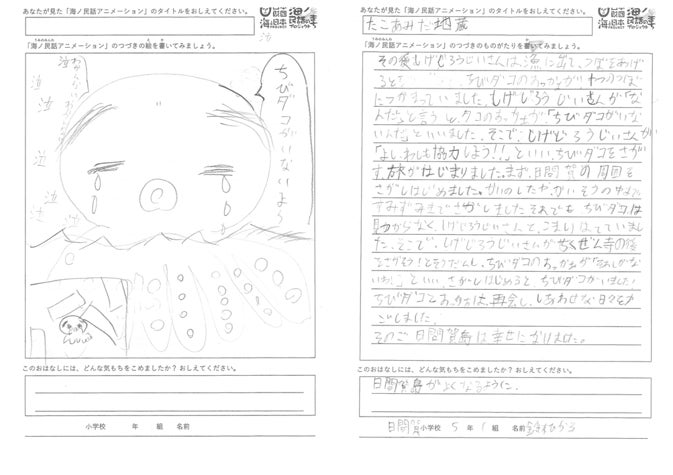 あなたが見た「海ノ民話アニメーション」のタイトルをおしえてください。
海ノ民話のまちプロジェクト
「海ノ民話アニメーション」のつづきの絵を書いてみましょう。
ちびダコがいないよ〜
泣
泣
泣
泣
泣
泣
このおはなしには、どんな気もちをこめましたか?おしえてください。
小学校 年 組 名前
あなたが見た「海ノ民話アニメーション」のタイトルをおしえてください。
海ノ民話のまちプロジェクト
たこあみだ地蔵
「海ノ民話アニメーション」のつづきのものがたりを書いてみましょう。
その後しげじろうじいさんは、漁に出て、つぼをあげ
ると ちびダコのおっかあが、 つぼ
につかまっていました。しげじろうじいさんが「な
んだ」と言うと、タコのおっかあが「ちびダコがいな
いんだ」といいました。そこで、しげじろうじいさんが
「よし、わしも協力しよう!!」といい、ちびダコをさが
す、旅がはじまりました。まず、日間賀の周回を
さがしはじめました。かいのしたや、かいそうの中まで
すみずみまでさがしましたそれでも ちびダコは
見つからなく、しげじろうじいさんと、こまりはてていまし
た、そこで、しげじろうじいさんが ぜん寺の後
をさがそう!と ちびダコのおっかあが
といい、さがしはじめると、ちびダコがいました!
ちびダコとおっかあは、再会し、しあわせな日々をす
ごしました。
そのご日間賀島は幸せになりました。
このおはなしには、どんな気もちをこめましたか?おしえてください。
日間賀島がよくなるように。
日間賀小学校 5 年 1 組 名前